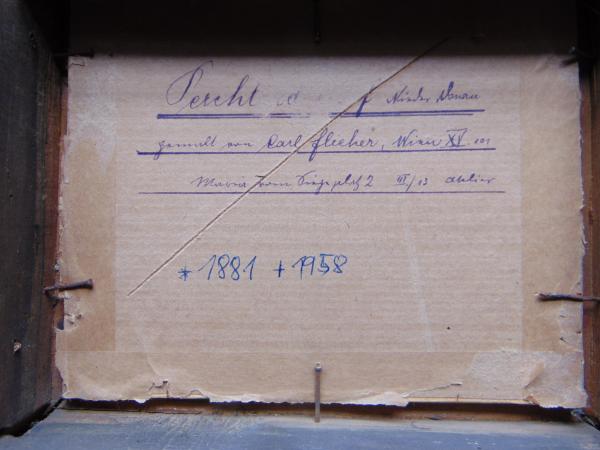 Percht f Nieder Donau
gemalt von Carl Flieher, Wien XV. 101
Maria vom Siege platz 2 III/13 Atelier
* 1881 + 1958